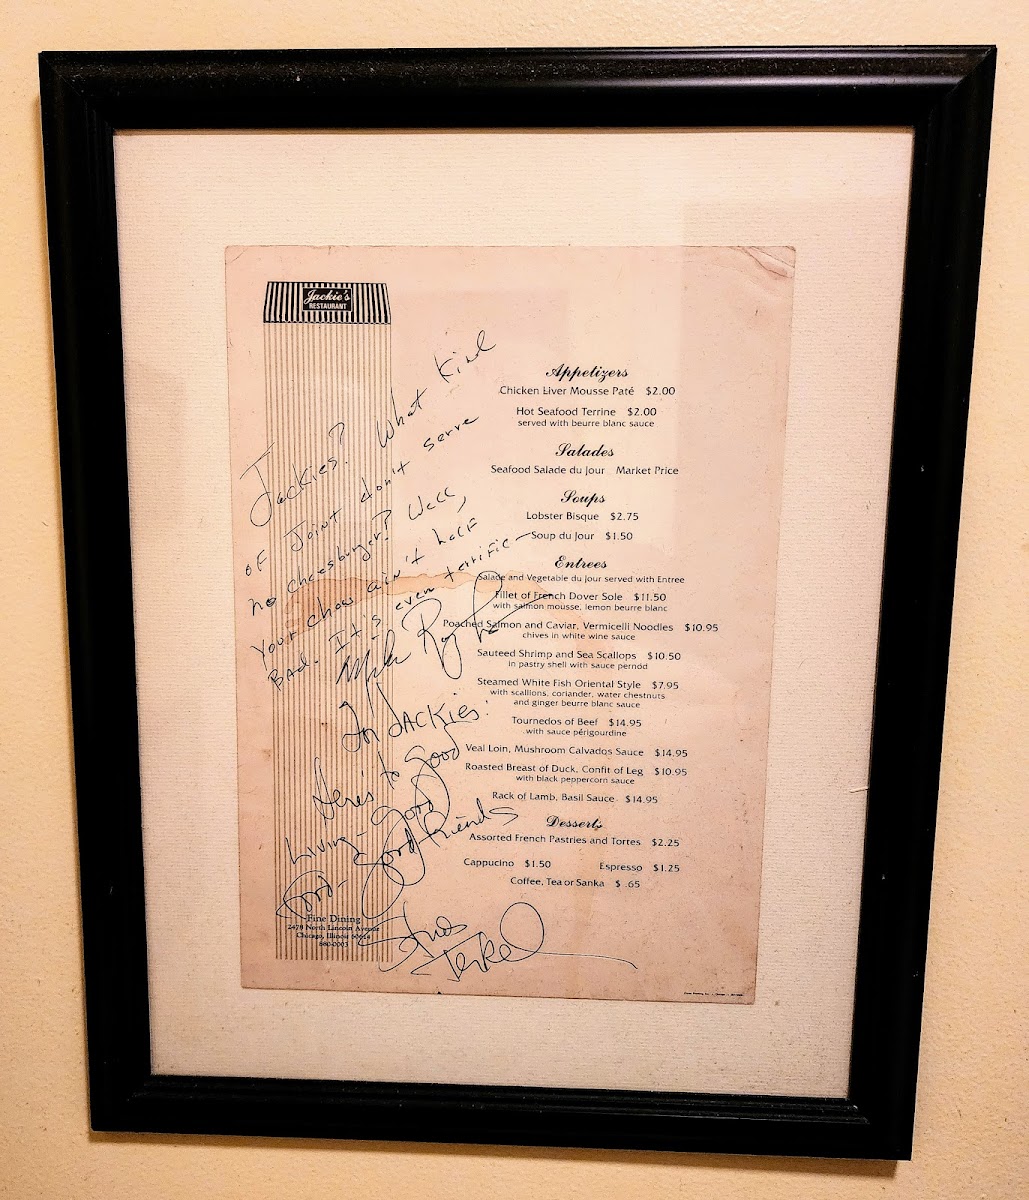 Jackie's
RESTAURANT
Jackies? What kind
of Joint don't serve
no cheesburger? Well,
Your chow ain't half
Bad. It's even terrific –
Mike Royko
For JACKIES:
Here's to good
Living – good
Food – good friends
Studs
Terkel
Fine Dining
2478 North Lincoln Avenue
Chicago, Illinois 60614
880-0003
Appetizers
Chicken Liver Mousse Paté $2.00
Hot Seafood Terrine $2.00
served with beurre blanc sauce
Salades
Seafood Salade du Jour Market Price
Soups
Lobster Bisque $2.75
Soup du Jour $1.50
Entrees
Salade and Vegetable du jour served with Entree
Fillet of French Dover Sole $11.50
with salmon mousse, lemon beurre blanc
Poached Salmon and Caviar, Vermicelli Noodles $10.95
chives in white wine sauce
Sauteed Shrimp and Sea Scallops $10.50
in pastry shell with sauce pernod
Steamed White Fish Oriental Style $7.95
with scallions, coriander, water chestnuts
and ginger beurre blanc sauce
Tournedos of Beef $14.95
with sauce périgourdine
Veal Loin, Mushroom Calvados Sauce $14.95
Roasted Breast of Duck, Confit of Leg $10.95
with black peppercorn sauce
Rack of Lamb, Basil Sauce $14.95
Desserts
Assorted French Pastries and Tortes $2.25
Cappucino $1.50 Espresso $1.25
Coffee, Tea or Sanka $ .65